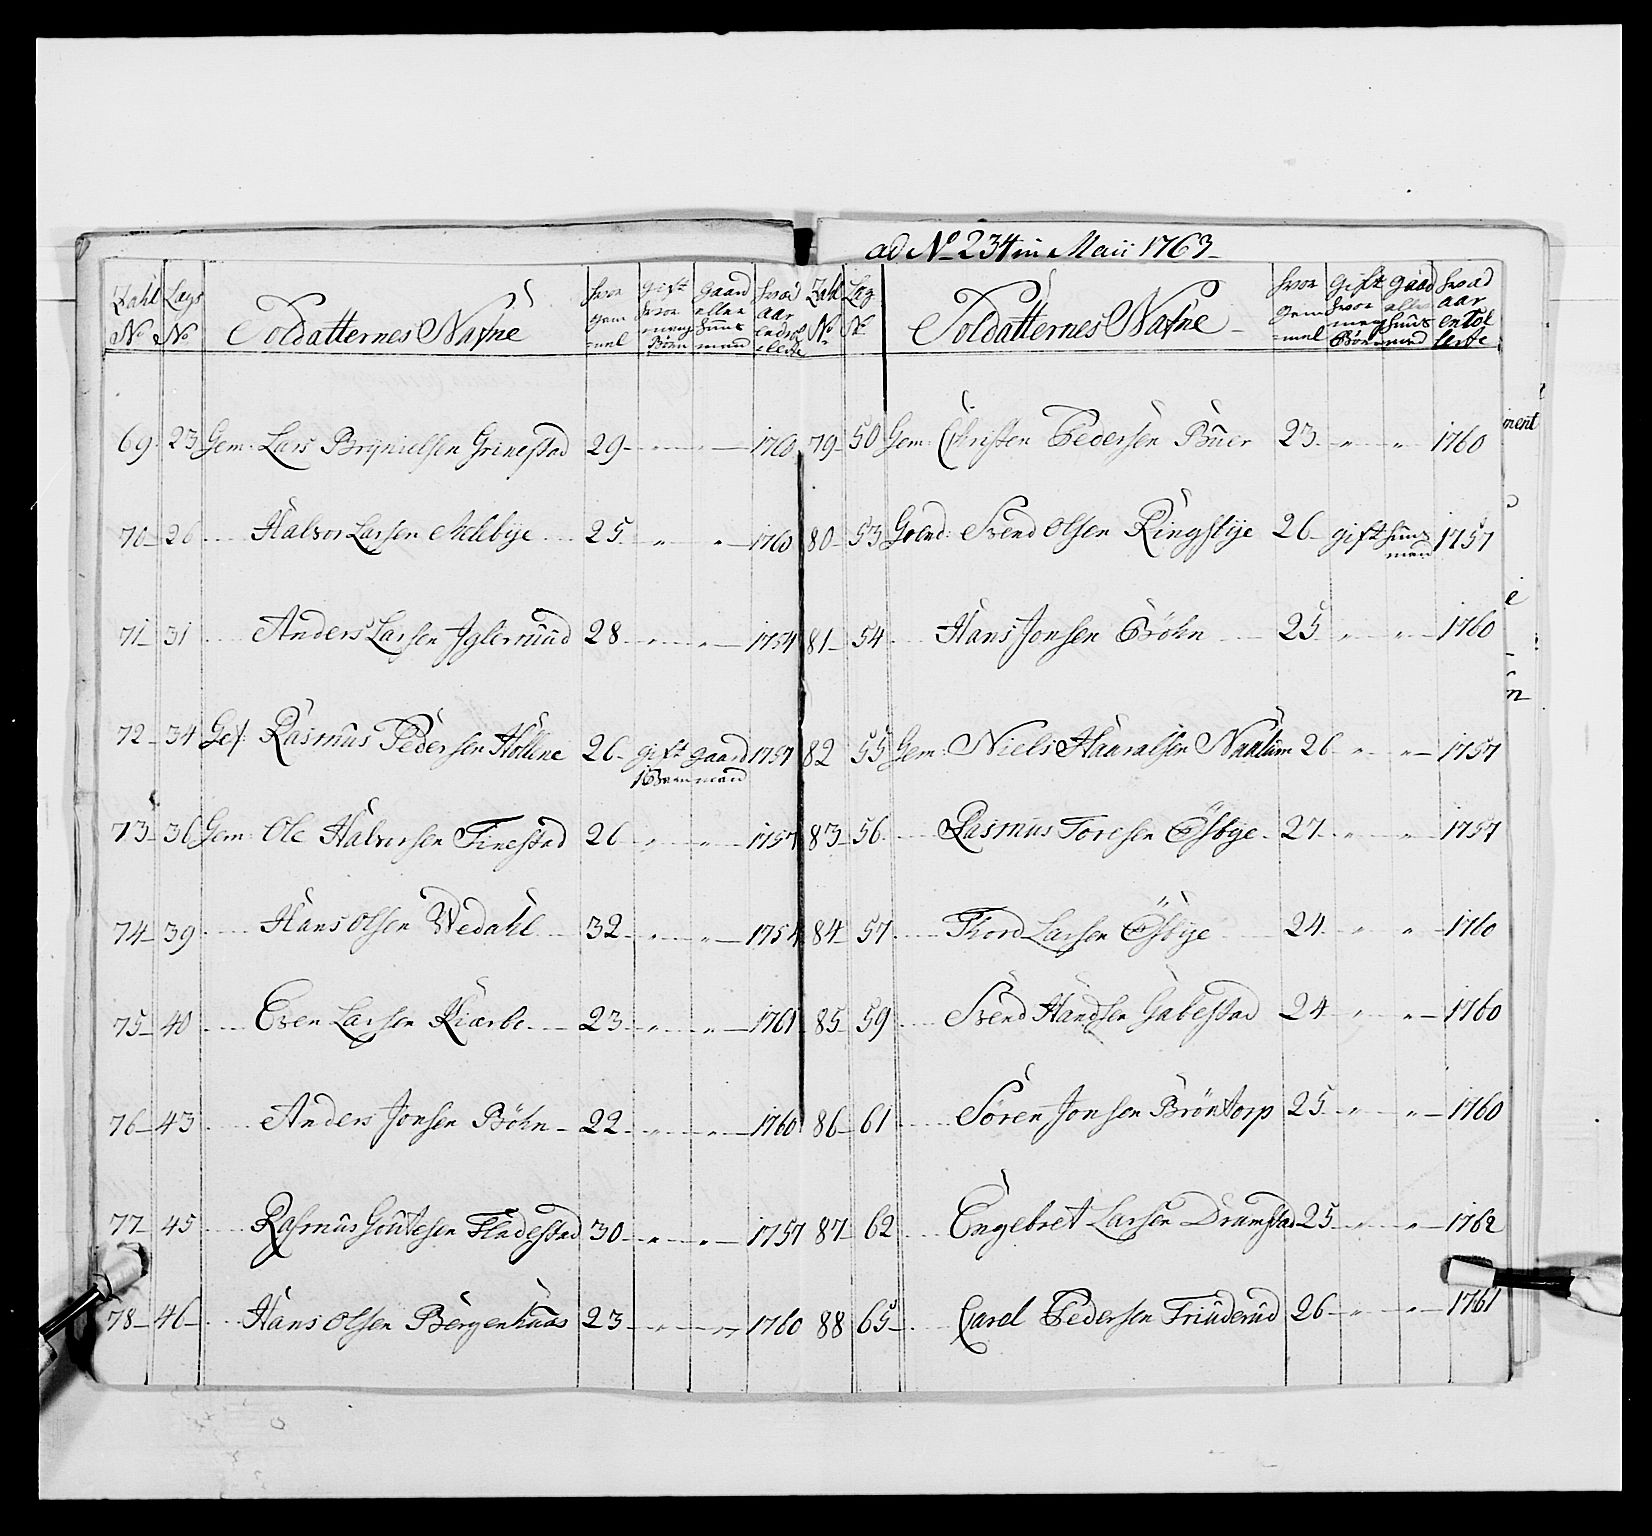 ad No 234 in Maii 1763
Zahl No Lags No Soldatternes Nafne hvor gammel gift hvor mang Börn gaard eller huus mand hvad aar enrollerte
69 23 Gem: Lars Brynielsen Grinestad 29 " " 1760
70 26 Halvor Larsen Melebÿe 25 " " 1760
71 31 Anders Larsen Iglerund 28 " " 1754
72 34 Gef: Rasmus Pedersen Hollene 26 gift 1 Barn gaard mand 1757
73 36 Gem: Ole Halvorsen Finestad 26 " " 1757
74 39 Hans Olsen Wedahl 32 " " 1754
75 40 Even Larsen Kiærbe 23 " " 1761
76 43 Anders Jonsen Böhn 22 " " 1760
77 45 Rasmus Goutesen Fladestad 30 " " 1757
78 46 Hans Olsen Bergenhuus 23 " " 1760
Zahl No Lag No Soldatternes Nafne hvor gammel gift hvor mang Börn gaard eller huus mand hvad aar enrollerte
79 50 Gem: Christen Pedersen Buer 23 " " 1760
80 53 Svend Olsen Ringsbÿe 26 gift huus mand 1757
81 54 Hans Jonsen Bröhn 25 " " 1760
82 55 Gem: Niels Haaralsen Naalum 26 " " 1757
83 56 Rasmus Toresen Ösbÿe 27 " " 1757
84 57 Thord Larsen Ösbÿe 24 " " 1760
85 59 Svend Handsen Gabestad 24 " " 1760
86 61 Sören Jonsen Bröntorp 25 " " 1760
87 62 Engebret Larsen Dramstad 25 " " 1762
88 65 Carel Pedersen Friuderud 26 " " 1761